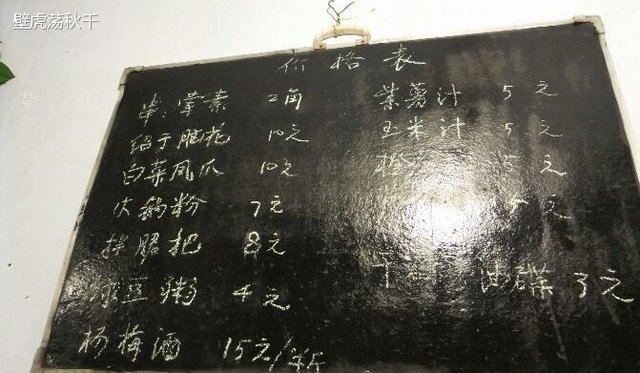 壁虎荡秋千
价格表
串:荤素 2角
绍子脑花 10元
白菜凤爪 10元
火锅粉 7元
拌腰把 8元
豆粥 4元
杨梅酒 15元/半斤
紫薯汁 5元
玉米汁 5元
橙 5元
5元
干 油碟 3元